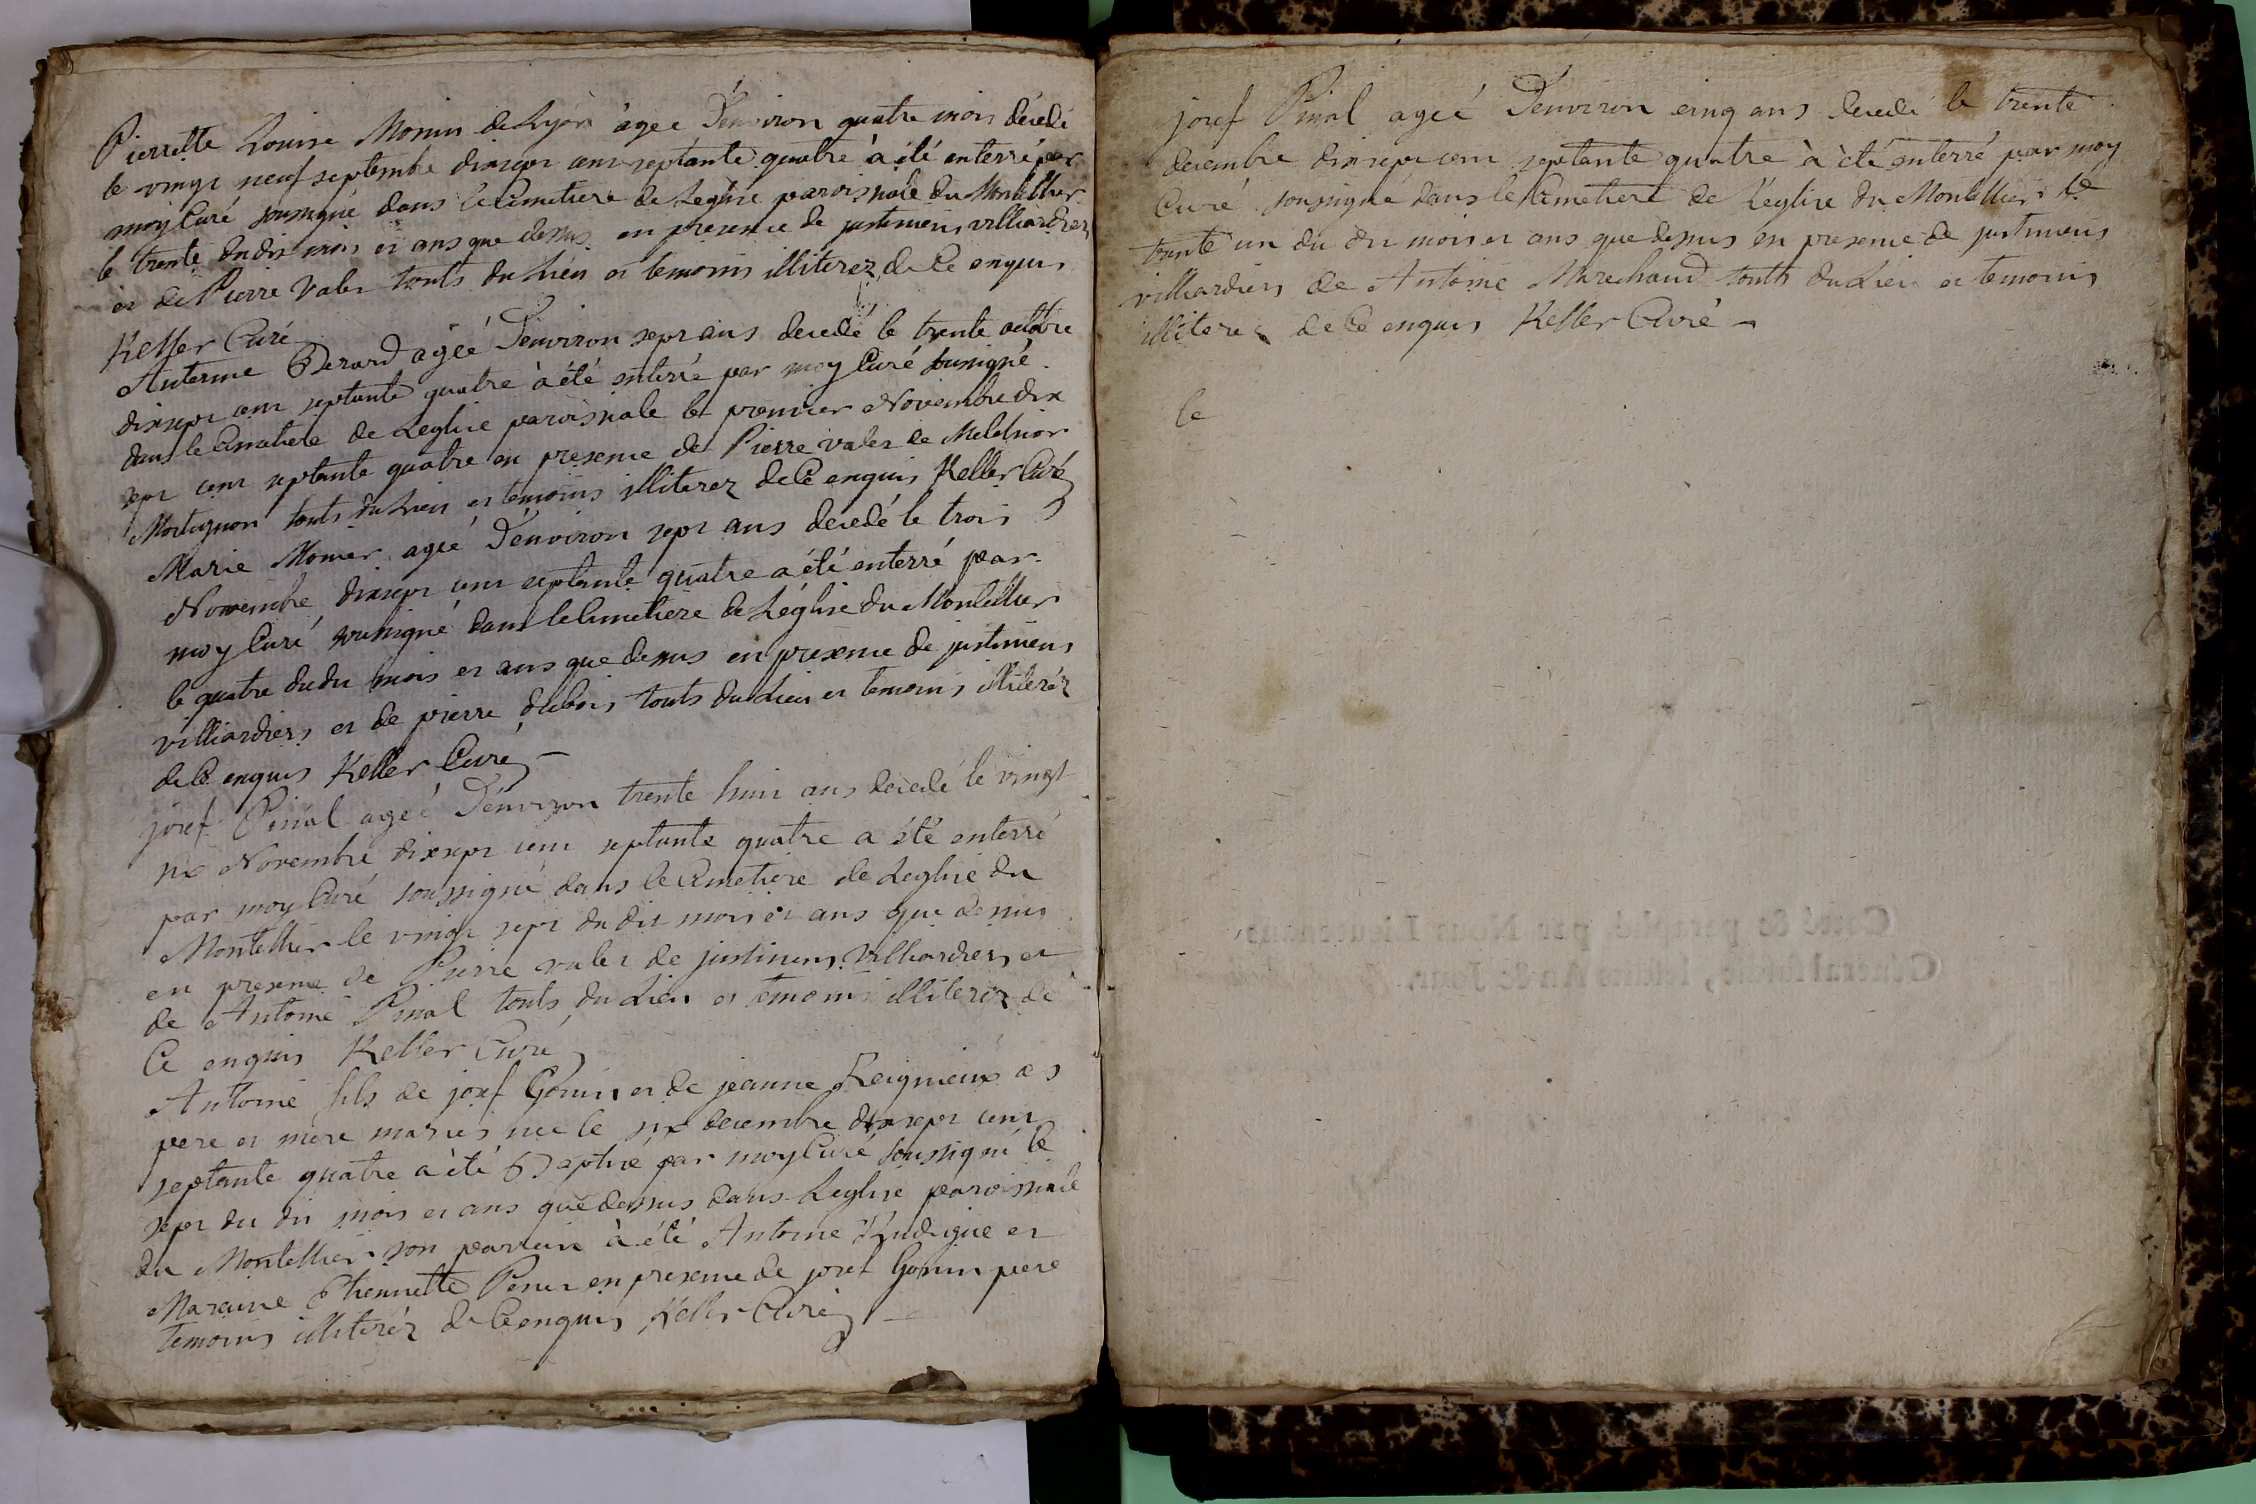 Pierrette Louise Monin de Lyon agee d'environ quatre mois décedé
le vingt neuf septembre dixsept cent septante quatre à été enterré par
moy Curé sousigné dans le Cimetiere de Leglise paroissiale du Montellier
le trente du dit mois et ans que dessus en presence de justiniens villiardiers
et de Pierre Valet touts du Lieu et temoins illiterez de Ce enquis
Keller Curé
Anterme Berard ageé d'environ sept ans decedé le trente octobre
dixsept cent septante quatre à été enterré par moy Curé sousigné
dans le Cimetiere de Leglise paroissiale le premier Novembre dix
sept cent septante quatre en presence de Pierre valet de Melchior
touts du Lieu et temoins illiterez de Ce enquis Keller Curé
Marie Monier ageé d'environ sept ans decedé le trois
Novembre dixsept cent septante quatre a été enterré par
moy Curé sousigné dans le Cimetiere de Léglise du Montellier
le quatre du dit mois et ans que dessus en presence de justiniens
villiardiers et de pierre dubois touts du Lieu et temoins illiteréz
de Ce enquis Keller Curé
josef Pinal ageé d'environ trente huit ans decedé le vingt
six Novembre dixsept cent septante quatre a été enterré
par moy Curé soussigné dans le Cimetiere de Leglise du
Montellier le vingt sept du dit mois et ans que dessus
en presence de Pierre valet de justiniens villiardiers et
de Antoine Pinal touts du Lieu et temoins illiterez de
Ce enquis Keller Curé
Antoine fils de josef Gonin et de jeanne Reignieux ses
pere et mere maries neé le six decembre dixsept cent
septante quatre a été Baptisé par moy Curé soussigné le
sept du dit mois et ans que dessus dans Leglise paroissiale
du Montellier son parrain à été Antoine et
Maraine Etiennette en presence de josef Gonin pere
temoins illiteréz de Ce enquis Keller Curé
josef Pinal ageé d'environ cinq ans decedé le trente
decembre dixsept cent septante quatre à été enterré par moy
Curé soussigné dans le Cimetiere de L'eglise du Montellier le
trente un du dit mois et ans que dessus en presence de justiniens
villiardiers de Antoine Marechaud touts du Lieu et temoins
illiterez de Ce enquis Keller Curé
le
Cotté & paraphé par Nous Lieutenant